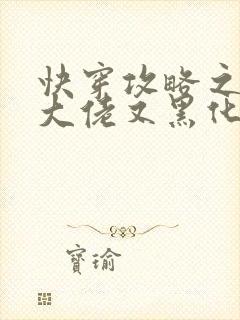 快穿攻略之
大佬又黑化
寳瑜